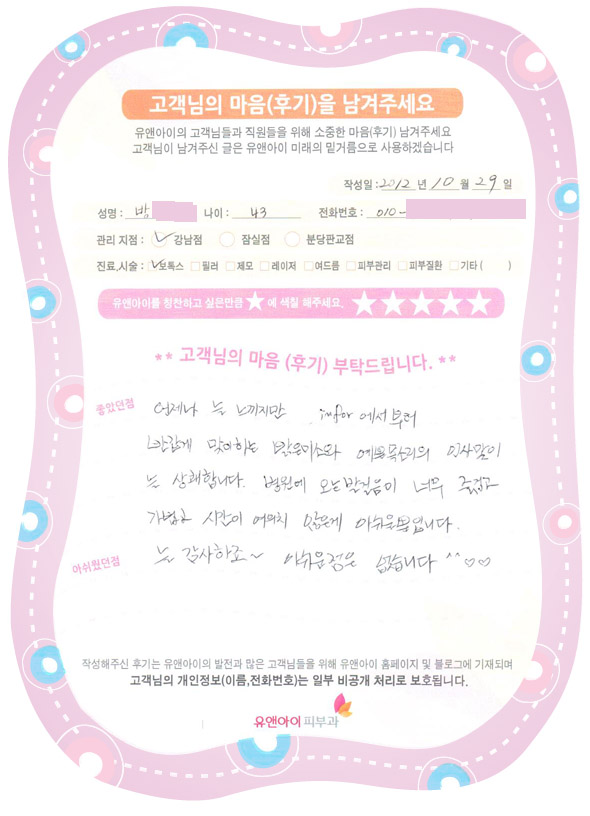 고객님의 마음(후기)을 남겨주세요
유앤아이의 고객님들과 직원들을 위해 소중한 마음(후기) 남겨주세요
고객님이 남겨주신 글은 유앤아이 미래의 밑거름으로 사용하겠습니다
작성일 : 2012 년 10 월 29 일
성명 : 박 나이 : 43 전화번호 : 010-
관리 지점 : 강남점 잠실점 분당판교점
진료,시술 : 보톡스 필러 제모 레이저 여드름 피부관리 피부질환 기타 ( )
유앤아이를 칭찬하고 싶은만큼 ★ 에 색칠 해주세요. ★★★★★
** 고객님의 마음 (후기) 부탁드립니다. **
좋았던점 언제나 늘 느끼지만 infor 에서부터
반갑게 맞이하는 밝은미소와 예쁜목소리의 인사말이
늘 상쾌합니다. 병원에 오는발걸음이 너무 즐겁고
가볍고 시간이 여의치 않은게 아쉬운뿐입니다.
아쉬웠던점 늘 감사하죠~ 아쉬운점은 없습니다 ^^♡♡
작성해주신 후기는 유앤아이의 발전과 많은 고객님들을 위해 유앤아이 홈페이지 및 블로그에 기재되며
고객님의 개인정보(이름,전화번호)는 일부 비공개 처리로 보호됩니다.
유앤아이 피부과